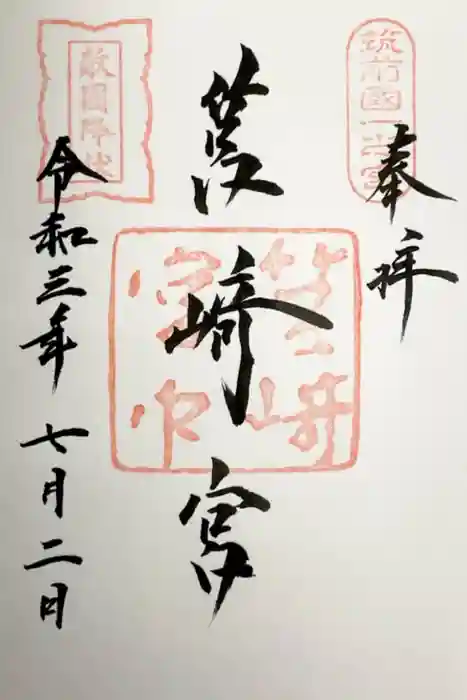 奉拝
筑前國一之宮
筥崎宮
筥崎宮印
敵國降伏
令和三年七月二日